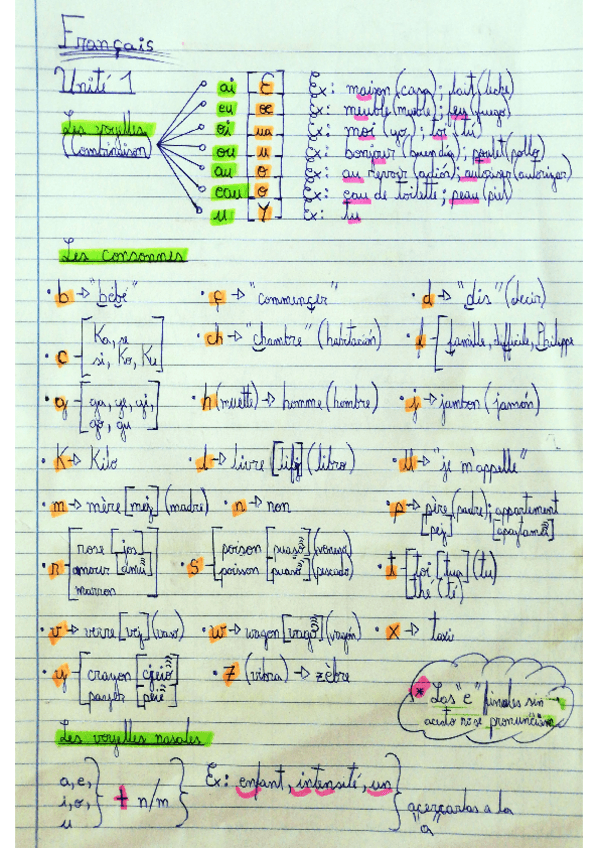 Français
Unité 1
Les voyelles
(Combinaison)
ai [ Ɛ ] Ex: maison (casa); lait (leche)
eu [ œ ] Ex: meuble (mueble); feu (fuego)
oi [ ua ] Ex: moi (yo); toi (tú)
ou [ u ] Ex: bonjour (buen día); poulet (pollo)
au [ o ] Ex: au revoir (adiós); autoriser (autorizar)
eau [ o ] Ex: eau de toilette; peau (piel)
u [ Y ] Ex: tu
Les consonnes
· b → "bébé" · ç → "commençer" · d → "dis" (decir)
· c - [Ka, se, si, Ko, Ku] · ch → "chambre" (habitación) · f - [famille, difficile, Philippe
· g - [ga, ge, gi, go, gu] · h (muette) → homme (hombre) · j → jambon (jamón)
· K → Kilo · l → livre (libro) · ll → "je m'appelle"
· m → mère [mej] (madre) · n → non · p → père (padre); appartement
[pej]
· r - [rose [jos]
amour
marron
· s - [poison
poisson (pescado)
· t - [toi [tua] (tu)
thé (té)
· v → verre [vej] (vaso) · w → wagon (vagón) · x → taxi
· y - [crayon
payer
· Z (vibra) → zèbre
* Las "e" finales sin
acento no se pronuncian
Les voyelles nasales
a, e,
i, o,
u } + n/m } Ex: enfant, intensité, un } acercarlas a la
"a"